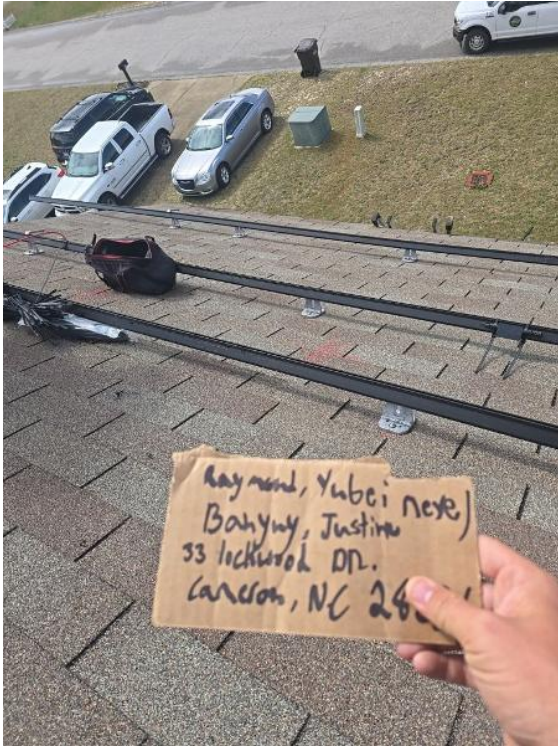 Raymond, Yubei nere)
Banyny, Justine
33 lockwood DR.
Cameron, NC